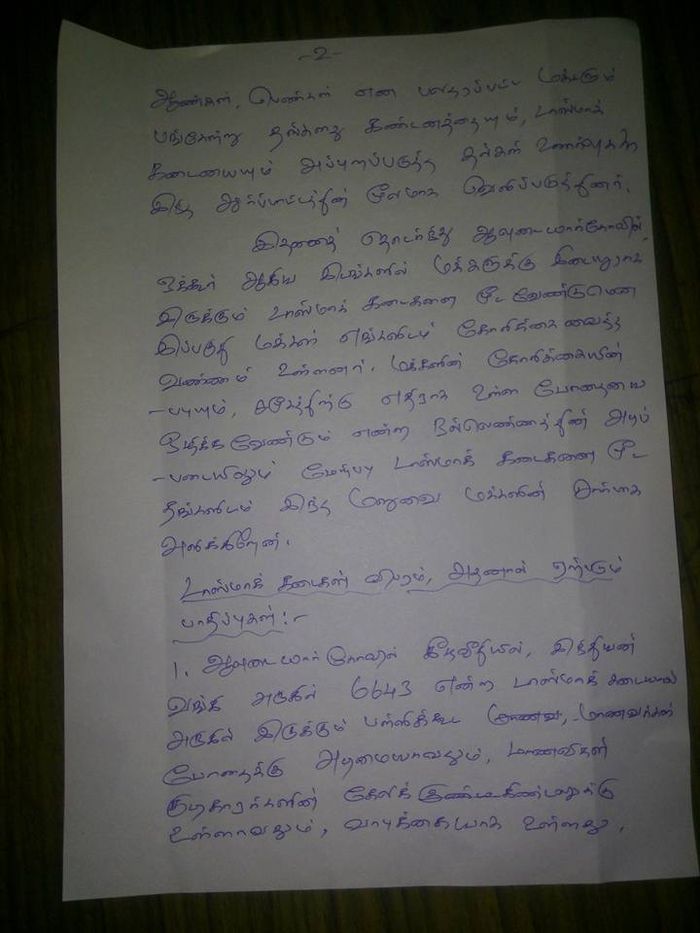 -2-
ஆண்கள், பெண்கள் என பலதரப்பட்ட மக்களும்
பங்கேற்று தங்களது கண்டனத்தையும், டாஸ்மாக்
கடையையும் அப்புறப்படுத்த தங்கள் உணர்வுகளை
இந்த ஆர்ப்பாட்டத்தின் மூலமாக வெளிப்படுத்தினர்.
இதனைத் தொடர்ந்து ஆவுடையார்கோவில்,
ஒக்கூர் ஆகிய இடங்களில் மக்களுக்கு இடையூறாக
இருக்கும் டாஸ்மாக் கடைகளை மூட வேண்டுமென
இப்பகுதி மக்கள் எங்களிடம் கோரிக்கை வைத்த
வண்ணம் உள்ளனர். மக்களின் கோரிக்கையின்
-படியும், சமூகத்திற்கு எதிராக உள்ள போதையை
ஒழிக்கவேண்டும் என்ற நல்லெண்ணத்தின் அடிப்
-படையிலும் மேற்படி டாஸ்மாக் கடைகளை மூட
தங்களிடம் இந்த மனுவை மக்களின் சார்பாக
அளிக்கிறேன்.
டாஸ்மாக் கடைகள் விபரம், அதனால் ஏற்படும்
பாதிப்புகள்:-
1. ஆவுடையார்கோவில் கீழவீதியில், இந்தியன்
வங்கி அருகில் 6643 என்ற டாஸ்மாக் கடையால்
அருகில் இருக்கும் பள்ளிக்கூட மாணவ, -மாணவர்கள்
போதைக்கு அடிமையாவதும், மாணவிகள்
குடிகாரர்களின் கேலிக்
உள்ளாவதும், வாடிக்கையாக உள்ளது.